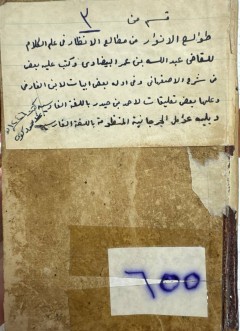 قسم من ٣
طوالع الانوار من مطالع الانظار فى علم الكلام
للقاضى عبد الله بن عمر البيضاوى وكتب عليه بعض
من شرح الاصفهانى وفى اوله بعض ابيات لابن الفارض
وعليها بعض تعليقات لاحمد بن حيدر باللغة الفارسية
ويليه عوامل الجرجانية المنظومة باللغة الفارسية
٦٥٥